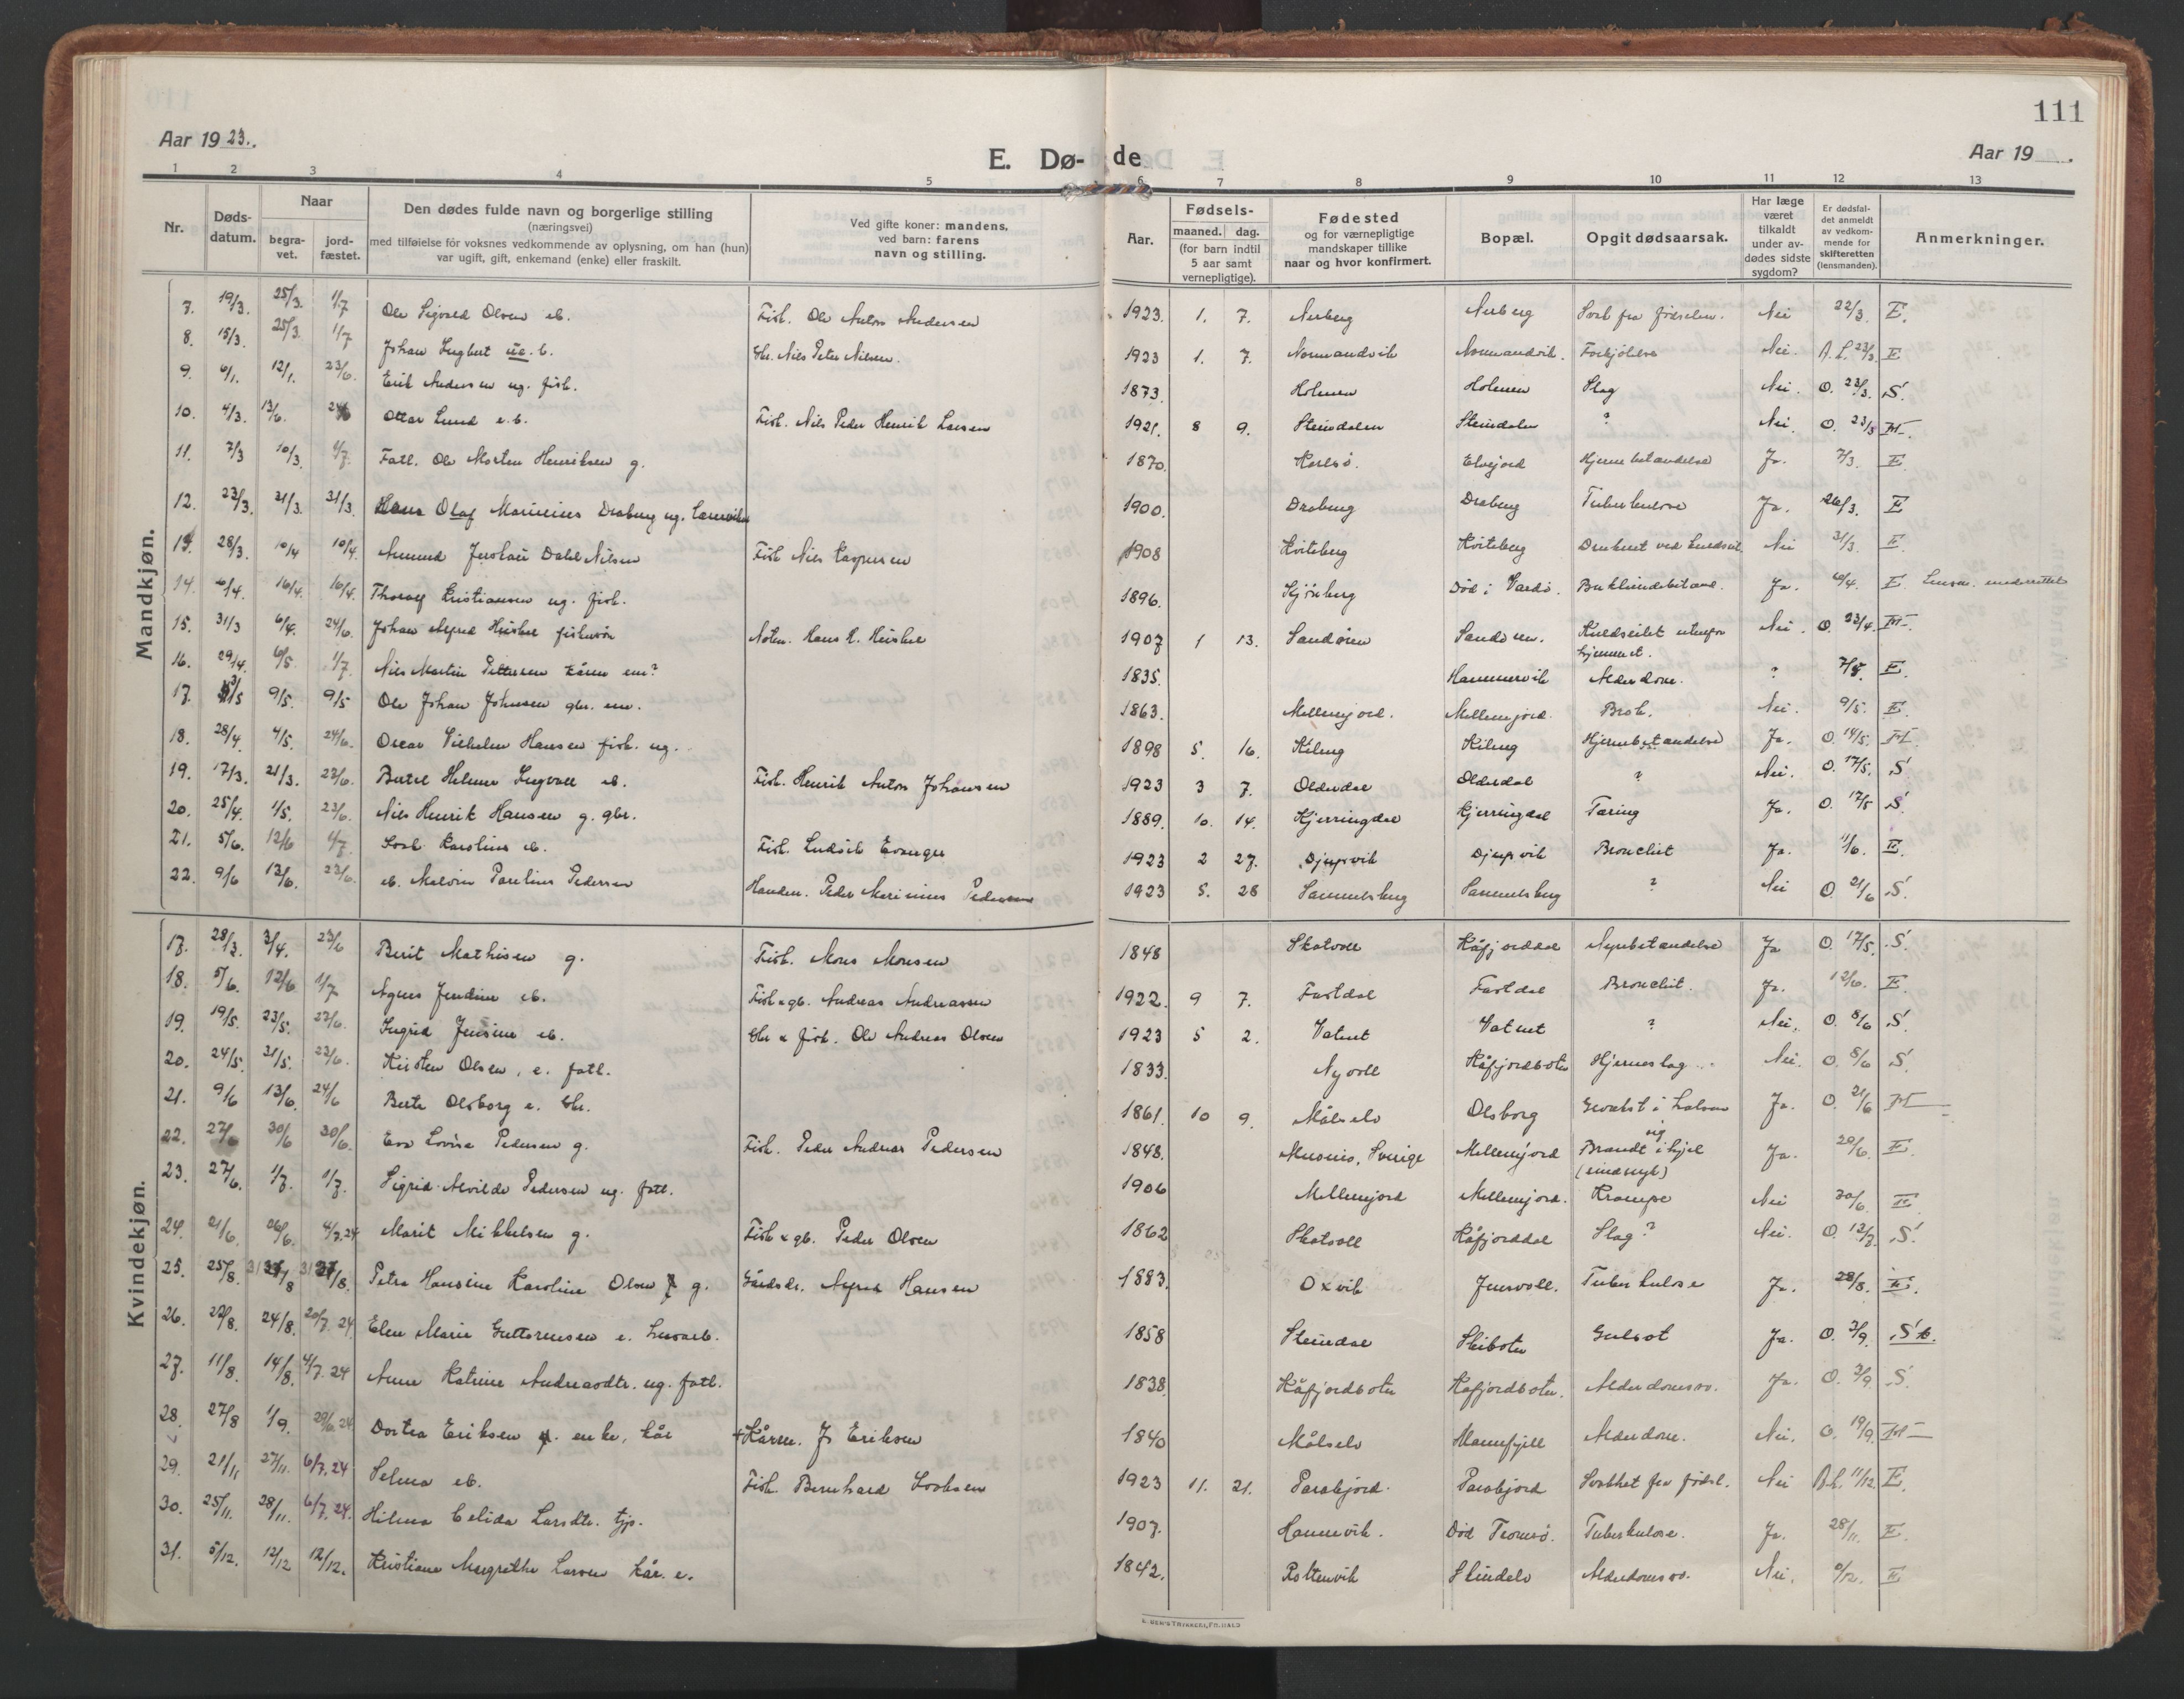 111
Aar 1923.
E. Dø-de
Aar 19
1 2 3 4 5 6 7 8 9 10 11 12 13
Nr.
Døds-datum.
Naar
begra-vet.
jord-fæstet.
Den dødes fulde navn og borgerlige stilling
(næringsvei)
med tilføielse for voksnes vedkommende av oplysning, om han (hun)
var ugift, gift, enkemand (enke) eller fraskilt.
Ved gifte koner: mandens,
ved barn: farens
navn og stilling.
Aar.
Fødsels-
maaned. dag.
(for barn indtil
5 aar samt
vernepligtige).
Fødested
og for værnepligtige
mandskaper tillike
naar og hvor konfirmert.
Bopæl.
Opgit dødsaarsak.
Har læge
været
tilkaldt
under av-
dødes sidste
sygdom?
Er dødsfal-
det anmeldt
av vedkom-
mende for
skifteretten
(lensmanden).
Anmerkninger.
Mandkjøn.
7. 19/3. 25/3. 1/7 Ole Sigvald Olsen eb. Fisk. Ole Anton Andersen 1923. 1. 7. Nerberg Nerberg Svak fra fødselen. Nei 22/3. E.
8. 15/3. 25/3. 1/7 Johan Ingbert ue. b. Gbr. Nils Peter Nilsen. 1923 1. 7. Normandvik Normandvik. Forkjölelse Nei. A.L. 23/3 E
9. 6/1. 12/1. 23/6. Erik Andersen ug. fisk. 1873. Holmen Holmen Slag Nei. O. 23/3. S.
10. 4/3. 13/6. 24/6 Ottar Lund e.b. Fisk. Nils Peder Henrik Larsen 1921. 8 9. Steindalen Steindalen ? Nei. O. 23/3 M.
11. 7/3 10/3. 1/7. Fatl. Ole Morten Henriksen g. 1870. Karlsö. Elvejord Hjernebetændelse Ja. 7/3. E
12. 23/3. 31/3. 31/3. Hans Olaf Marinius Draberg ug. 1900. Draberg Draberg Tuberkulose Ja. 26/3. E
13. 28/3. 10/4 10/4. Amund Dahl Nilsen Fisk Nils Kaspersen 1908 Kviteberg Kviteberg Druknet ved Nei 31/3. E.
14. 6/4. 16/4. 16/4. Thoralf Kristiansen ug. fisk. 1896. Kjönberg Död i Vardö. Ja. 6/4. E
15. 31/3 6/4. 24/6. Johan Alfred Heiskel Hans H. Heiskel 1907 1 13. Sandören Sandören. Kuldseilet utenfor hjemmet. Nei. O. 23/4. M.
16. 29/4. 6/5. 1/7. Nils Martin Pettersen kårm em? 1835. Hammervik Alderdom. ? 7/5. E
17. 3/5 9/5. 9/5 Ole Johan Johnsen gbr. em. 1863. Mellemjord. Mellemjord. Brok. Nei. 9/5. E.
18. 28/4. 4/5. 24/6. Oscar Vilhelm Hansen fisk. ug. 1898 5. 16. Kileng Kileng Hjernebetændelse Ja. O. 14/5. M.
19. 17/3. 21/3. 23/6. Bertel Helmer Ingvall eb. Fisk. Henrik Anton Johansen 1923 3 7. Olderdal Olderdal ? Nei. O. 17/5. S.
20. 25/4. 1/5. 23/6. Nils Henrik Hansen g. gbr. 1889. 10. 14. Kjerringdal Kjerringdal Tæring Ja. O. 17/5 S.
21. 5/6. 12/6 1/7. Karoline eb. Fisk. Ludvik Evanger 1923 2 27. Djupvik Djupvik Bronchit Ja. 11/6. E.
22. 9/6 13/6. 23/6. eb. Melvin Paulius Pedersen Handm. Peder Marinius Pedersen 1923 5. 28 Samuelsberg Samuelsberg ? Nei O. 21/6 S.
Kvindekjøn.
17. 28/3. 3/4. 23/6 Berit Mathisen g. Fisk. Mons Monsen 1848 Skatvoll Kåfjorddal Nyrebetændelse Ja O. 17/5. S.
18. 5/6. 12/6 1/7 Agnes Jendine eb. Fisk & gb. Andreas Andreassen 1922. 9 7. Fastdal Fastdal Bronchit. Ja. 12/6. E.
19. 19/5. 23/5. 23/6. Ingrid Jensine eb. Gbr & fisk. Ole Andreas Olsen 1923 5 2. Vatnet Vatnet ? Nei. O. 8/6 S.
20. 24/5. 31/5. 23/6. Kirsten Olsen, e. fatl. 1833. Nyvoll Kåfjordbotn Hjerneslag. Nei. O. 8/6 S.
21. 9/6 13/6. 24/6 Berte Olsborg e. Gbr. 1861. 10 9. Målselv Olsborg Ja. O. 21/6 M
22. 27/6 30/6 30/6. Eva Lovisa Pedersen g. Fisk. Peder Andreas Pedersen 1848. Sverige Mellemjord Brændt sig ihjel Ja. 28/6. E.
23. 27/6. 1/7. 1/7. Sigrid Alvilde Pedersen ug. fatl. 1906 Mellemjord Mellemjord. Krampe Nei 30/6. E
24. 21/6. 26/6. 4/7.24 Marit Mikkelsen g. Fisk & gb. Peder Olsen 1862 Skatvoll Kåfjorddal Slag? Nei. O. 12/7. S.
25. 25/8. 31/8 31/8. Petra Hansine Karoline Olsen g. Gårdbr. Alfred Hansen 1883. Oxvik Jensvoll. Tuberkulose Ja. 28/8. E.
26. 22/8. 24/8. 20/7. 24. Elen Marie Guttormsen e. 1858 Steindal Skibotn Gulsot Ja. O. 3/9. S.
27. 11/8. 14/8. 4/7. 24 Anne Katrine Andreasdtr. ug. fatl. 1838. Kåfjordbotn Kåfjordbotn. Alderdomssv. Ja. O. 3/9. S.
28. 27/8 1/9. 29/6 24 Dortea Eriksen enke, kår + Kårm. Js Eriksen 1840 Målselv Mannfjell Alderdom. Nei. O. 19/9. M
29. 21/11 27/11. 6/7.24 Selma eb. Fisk. Bernhard Isaksen 1923 11. 21. Parakjord. Parakjord Svakhet fra fødsl. Nei A.L. 11/12. E.
30. 25/11. 28/11. 6/7.24. Hilma Celida Larsdtr. tjp. 1907. Hannevik. Död Tromsö. Tuberkulose. Ja. 28/11. E.
31. 5/12. 12/12 12/12. Kristiane Margrethe Larsen kår. e. 1842. Roltenvik Skindelv Alderdomssv. Nei. E